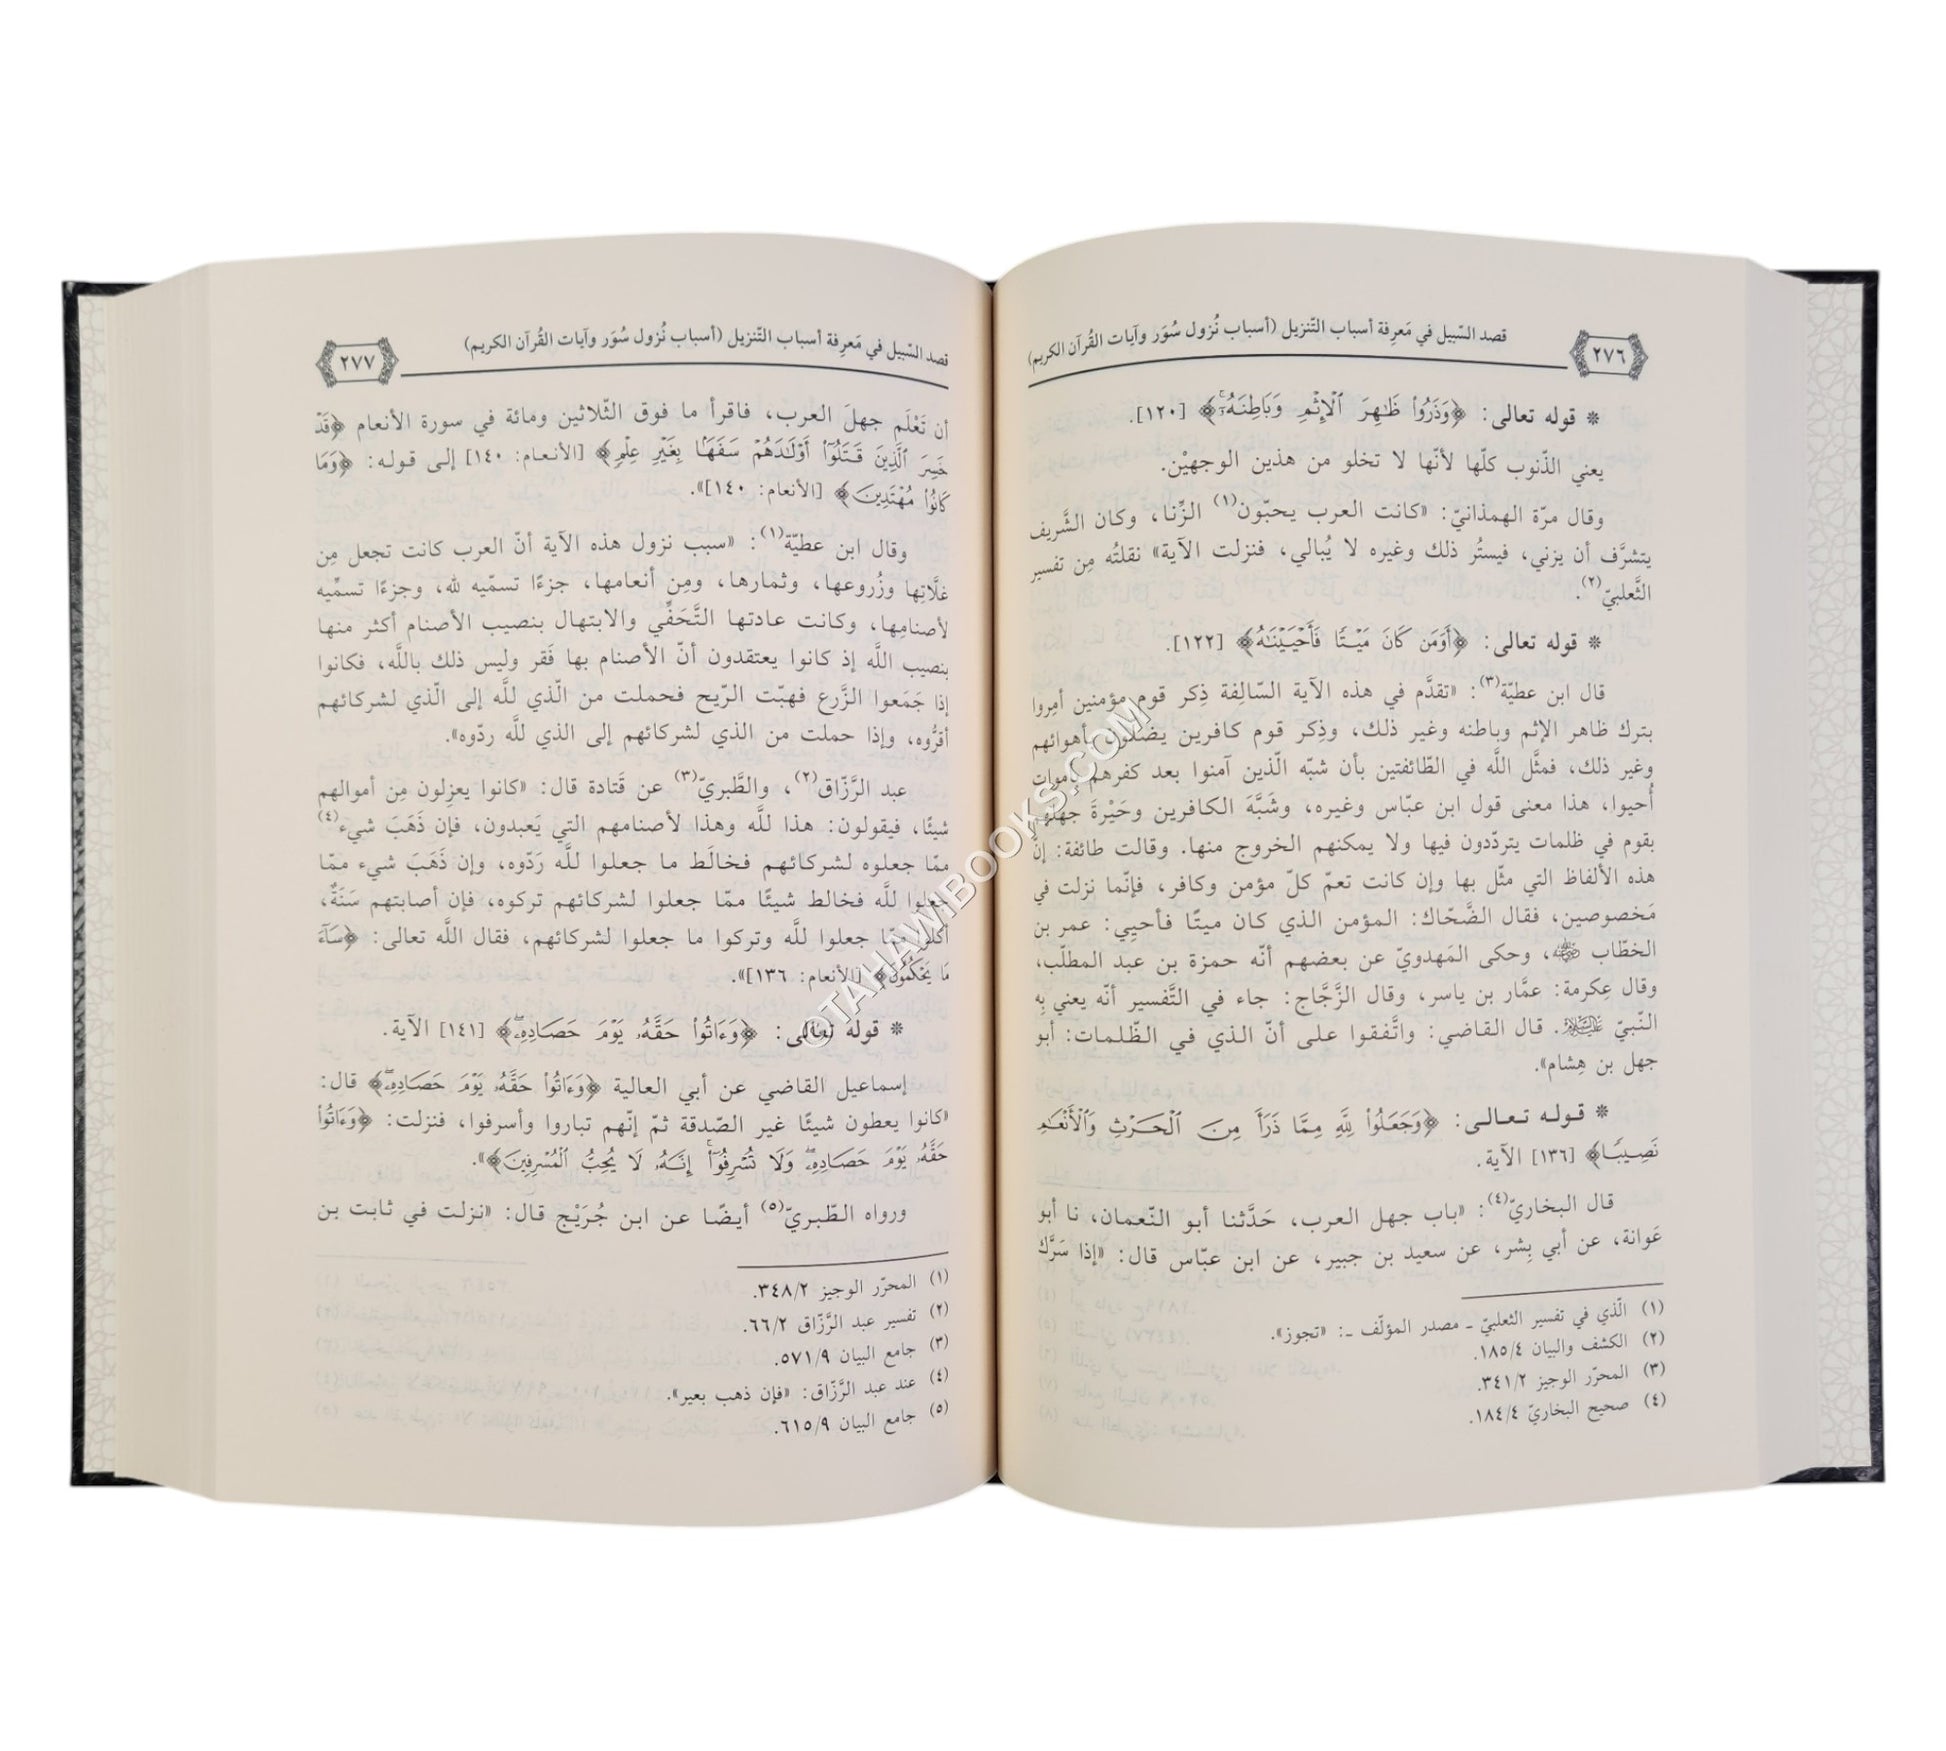 ٢٧٦
قصد السّبيل في مَعرِفة أسباب التّنزيل (أسباب نُزول سُوَر وآيات القُرآن الكريم)
* قوله تعالى: ﴿وَذَرُواْ ظَٰهِرَ ٱلْإِثْمِ وَبَاطِنَهُۥٓ﴾ [١٢٠].
يعني الذّنوب كلّها لأنّها لا تخلو من هذين الوجهيْن.
وقال مرّة الهمذانيّ: «كانت العرب يحبّون(١) الزِّنا، وكان الشَّريف
يتشرَّف أن يزني، فيستُر ذلك وغيره لا يُبالي، فنزلت الآية» نقلتُه مِن تفسير
الثَّعلبيّ(٢).
* قوله تعالى: ﴿أَوَمَن كَانَ مَيْتًا فَأَحْيَيْنَٰهُ﴾ [١٢٢].
قال ابن عطيّة(٣): «تقدَّم في هذه الآية السّالِفة ذِكر قوم مؤمنين أمِروا
بترك ظاهر الإثم وباطنه وغير ذلك، وذِكر قوم كافرين يضلّون بأهوائهم
وغير ذلك، فمثَّل اللَّه في الطّائفتين بأن شبّه الّذين آمنوا بعد كفرهم بأموات
أُحيوا، هذا معنى قول ابن عبّاس وغيره، وشَبَّهَ الكافرين وحَيْرةَ جهلهم
بقوم في ظلمات يتردّدون فيها ولا يمكنهم الخروج منها. وقالت طائفة: إنّ
هذه الألفاظ التي مثّل بها وإن كانت تعمّ كلّ مؤمن وكافر، فإنّما نزلت في
مَخصوصين، فقال الضَّحّاك: المؤمن الذي كان ميتًا فأحيِي: عمر بن
الخطّاب ﵁، وحكى المَهدويّ عن بعضهم أنّه حمزة بن عبد المطلّب،
وقال عِكرمة: عمَّار بن ياسر، وقال الزَّجَّاج: جاء في التَّفسير أنّه يعني بِه
النّبيّ ﵇. قال القاضي: واتَّفقوا على أنّ الذي في الظّلمات: أبو
جهل بن هِشام».
* قوله تعالى: ﴿وَجَعَلُواْ لِلَّهِ مِمَّا ذَرَأَ مِنَ ٱلْحَرْثِ وَٱلْأَنْعَٰمِ
نَصِيبًا﴾ [١٣٦] الآية.
قال البخاريّ(٤): «باب جهل العرب، حَدَّثنا أبو النّعمان، نا أبو
عَوانة، عن أبي بِشر، عن سعيد بن جبير، عن ابن عبّاس قال: «إذا سَرَّك
(١) الّذي في تفسير الثعلبيّ ـ مصدر المؤلّف ـ: «تجوز».
(٢) الكشف والبيان ١٨٥/٤.
(٣) المحرّر الوجيز ٣٤١/٢.
(٤) صحيح البخاريّ ١٨٤/٤.
قصد السّبيل في مَعرِفة أسباب التّنزيل (أسباب نُزول سُوَر وآيات القُرآن الكريم)
٢٧٧
أن تَعْلَم جهلَ العرب، فاقرأ ما فوق الثّلاثين ومائة في سورة الأنعام ﴿قَدْ
خَسِرَ ٱلَّذِينَ قَتَلُوٓاْ أَوْلَٰدَهُمْ سَفَهًۢا بِغَيْرِ عِلْمٍ﴾ [الأنعام: ١٤٠] إلى قوله: ﴿وَمَا
كَانُواْ مُهْتَدِينَ﴾ [الأنعام: ١٤٠]».
وقال ابن عطيّة(١): «سبب نزول هذه الآية أنّ العرب كانت تجعل مِن
غلَّاتِها وزُروعها، وثمارها، ومِن أنعامها، جزءًا تسمّيه لله، وجزءًا تسمِّيه
لأصنامِها، وكانت عادتها التَّحَفِّي والابتهال بنصيب الأصنام أكثر منها
بنصيب اللَّه إذ كانوا يعتقدون أنّ الأصنام بها فَقر وليس ذلك باللَّه، فكانوا
إذا جَمَعوا الزَّرع فهبّت الرّيح فحملت من الّذي للَّه إلى الّذي لشركائهم
أقرُّوه، وإذا حملت من الذي لشركائهم إلى الذي للَّه ردّوه».
عبد الرَّزّاق(٢)، والطَّبريّ(٣) عن قَتادة قال: «كانوا يعزِلون مِن أموالهم
شيئًا، فيقولون: هذا للَّه وهذا لأصنامهم التي يَعبدون، فإن ذَهَبَ شيء(٤)
ممّا جعلوه لشركائهم فخالَط ما جعلوا للَّه رَدّوه، وإن ذَهَبَ شيء ممّا
جعلوا للَّه فخالط شيئًا ممّا جعلوا لشركائهم تركوه، فإن أصابتهم سَنَةٌ،
أكلوا ممّا جعلوا للَّه وتركوا ما جعلوا لشركائهم، فقال اللَّه تعالى: ﴿سَآءَ
مَا يَحْكُمُونَ﴾ [الأنعام: ١٣٦]».
* قوله تعالى: ﴿وَءَاتُواْ حَقَّهُۥ يَوْمَ حَصَادِهِۦ﴾ [١٤١] الآية.
إسماعيل القاضي عن أبي العالية ﴿وَءَاتُواْ حَقَّهُۥ يَوْمَ حَصَادِهِۦ﴾ قال:
«كانوا يعطون شيئًا غير الصّدقة ثمّ إنّهم تباروا وأسرفوا، فنزلت: ﴿وَءَاتُواْ
حَقَّهُۥ يَوْمَ حَصَادِهِۦ وَلَا تُسْرِفُوٓاْ إِنَّهُۥ لَا يُحِبُّ ٱلْمُسْرِفِينَ﴾».
ورواه الطّبريّ(٥) أيضًا عن ابن جُرَيْج قال: «نزلت في ثابت بن
(١) المحرّر الوجيز ٣٤٨/٢.
(٢) تفسير عبد الرَّزّاق ٦٦/٢.
(٣) جامع البيان ٥٧١/٩.
(٤) عند عبد الرَّزّاق: «فإن ذهب بعير».
(٥) جامع البيان ٦١٥/٩.
©TAHAWIBOOKS.COM